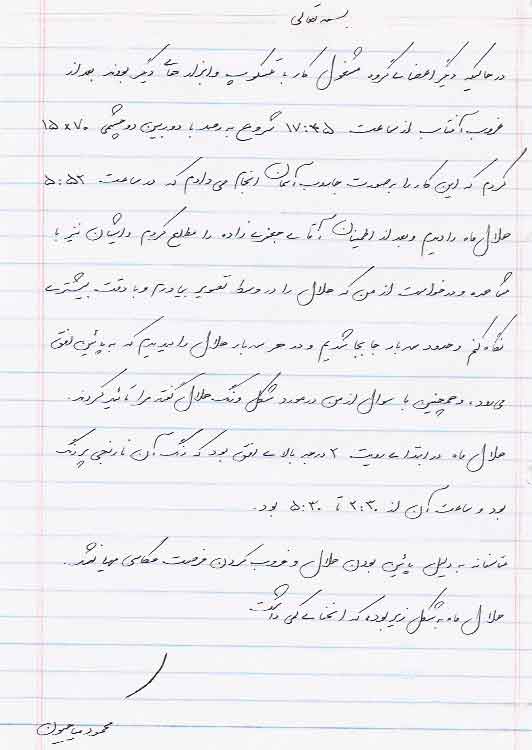 بسمه تعالی
در حالیکه دیگر اعضای گروه مشغول کار با تلسکوپ و ابزار های دیگر بودند بعد از
غروب آفتاب از ساعت ۱۷:۴۵ شروع به رصد با دوربین دو چشمی ۱۵x۷۰
کردم که این کار را بصورت جاروب آسمان انجام می دادم که در ساعت ۵:۵۲
هلال ماه را دیدم و بعد از اطمینان آقای جعفرزاده را مطلع کردم و ایشان نیز با
مشاهده و درخواست از من که هلال را در وسط تصویر بیاورم و با دقت بیشتری
نگاه کنم و حدود سه بار جابجا شدیم و در هر سه بار هلال را دیدیم که به پائین افق
می رود، و همچنین با سوال از من در مورد شکل و رنگ هلال گفته مرا تائید کردند.
هلال ماه در ابتدای رویت ۲ درجه بالای افق بود که رنگ آن نارنجی پر رنگ
بود و ساعت آن از ۲:۳۰ تا ۵:۳۰ بود.
متاسفانه به دلیل پائین بودن هلال و غروب کردن فرصت عکاسی مهیا نشد.
هلال ماه به شکل زیر بوده که انحنای کمی داشت
محمود